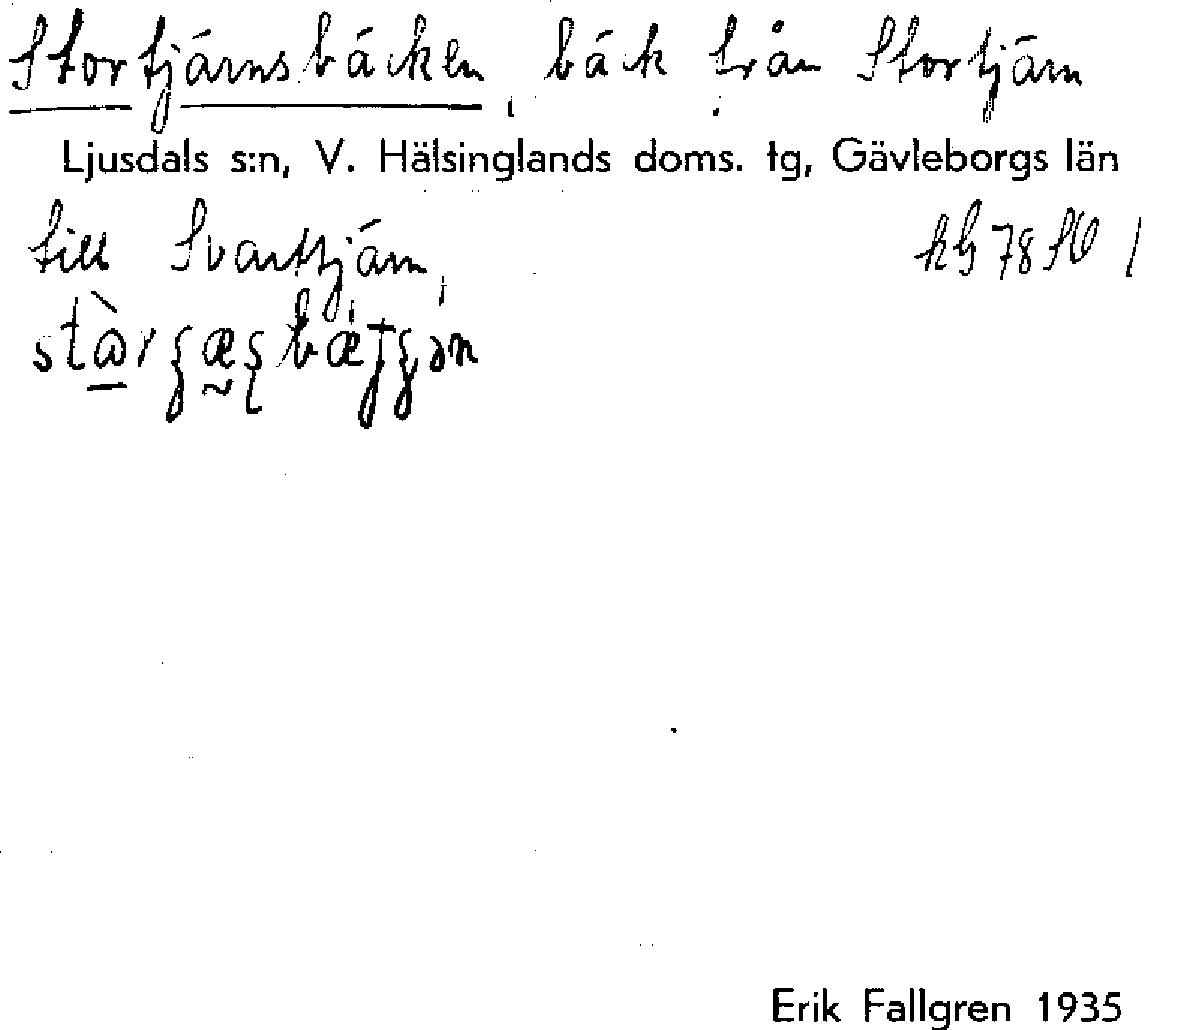 Stortjärnsbäcken, bäck från Stortjärn
Ljusdals s:n, V. Hälsinglands doms. tg, Gävleborgs län
till Svarttjärn,
Erik Fallgren 1935